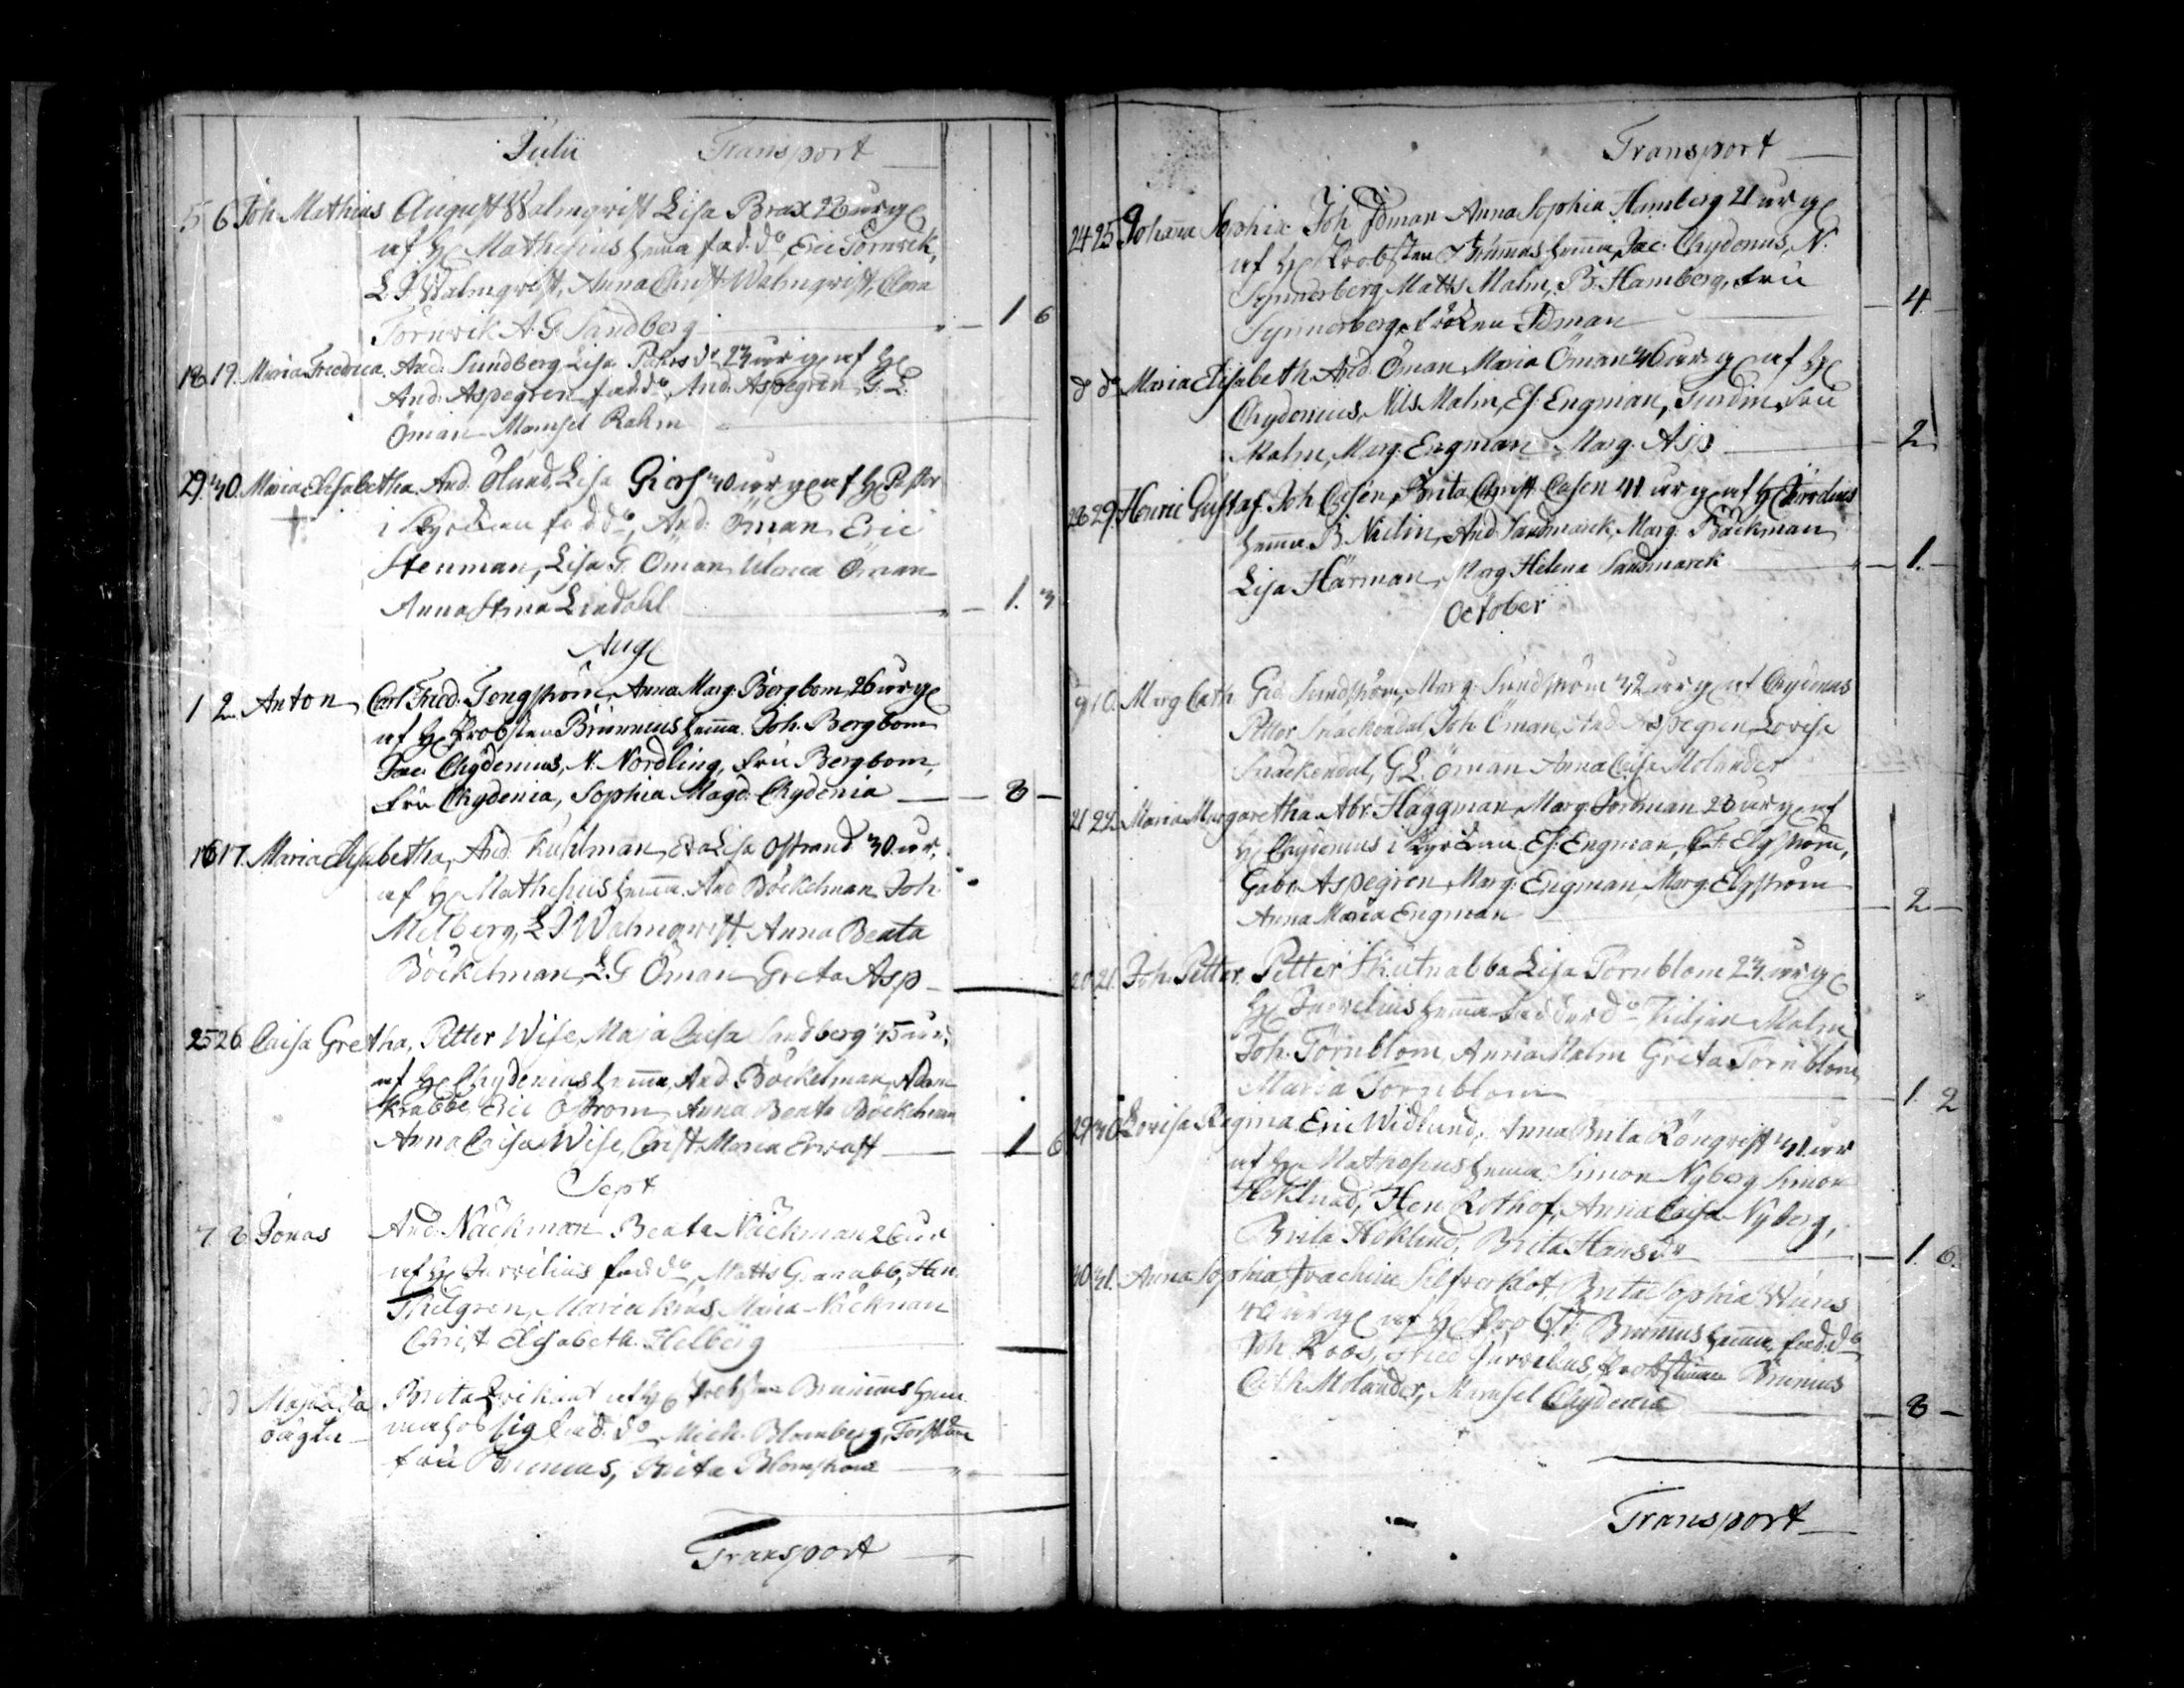 Julii Transport
5 6 Joh. Mathias August Walmqvist Lisa Brax 26 år g
af H Mathesius hema fad. do, Eric Törnvik,
L J Walmqvist, Anna Christ. Walmqvist, Clara
Törnvik A. G. Sandberg 1 6
18 19. Maria Fredrica. And. Sundberg Lisa 23 år g af H
And. Aspegren fadd. And. Aspegren G. L.
Öman Mamsel Rahm
29. 30. Maria Elisabetha And. Ölund, Lisa Giers 30 år g af H Pastor
i Kyrckan fadd. do, And. Öman Eric
Stenman, Lisa G. Öman Ulrica Öman
Anna Stina Lindahl 1. 3
Aug
1 2. Anton Carl Fred. Tengström, Anna Marg. Bergbom, 26 år g
af H Probsten Brunnius hema. Joh. Bergbom
Jac. Chydenius, N. Nordling, Fru Bergbom,
Fru Chydenia, Sophia Magd. Chydenia 8
16 17. Maria Elisabetha, And. Kuhlman, Eva Lisa Ostrand 30 år,
af H Mathesius hema. And Böckelman Joh.
Melberg, L J Walmqvist Anna Beata
Böckelman, L. G Öman Greta Asp
25 26. Caisa Gretha. Petter Wise, Maja Caisa Sandberg 35 år,
af H Chydenius hema, And. Böckelman, Adam
Krabbe Eric Öström Anna Beata Böckelman
Anna Caisa Wise, Christ. Maria Erwast 1 6
Sept
7. 8. Jonas And. Näckman Beata Näckman 26 år
af H Jurvelius fad. do, Matts G. nabb, Hen.
Thilgren, Maria Krås, Maria Näckman
Christ Elisabeth. Helberg
d d Maja Lisa Brita af H Probsten Brunnius hem
oägta ma hos sig fad. do Mich. Blomberg,
fru Brunnius, Brita Blomström
Transport
Transport
24 25 Johanna Sophia Joh Idman Anna Sophia Hamberg 21 år g
af H Probsten hemma, Jac. Chydenius, N.
Synnerberg Matts Malm, B. Hamberg, Fru
Synnerberg, fröken Idman 4
d do Maria Elisabeth And. Öman, Maria Öman 36 år g af H
Chydenius, Nils Malm, Es. Engman, fru
Malm, Marg. Engman Marg. Asp 2
28 29. Henric Gustaf. Joh Casén, Brita Christ. Casen 41 år g af H Jurvelius
hema. B. Nielin, And. Landmarck, Marg. Bäckman
Lisa Härman, Marg Helena Landmarck 1.
October
9 10. Marg Cath. Gid. Sundström, Marg. Sundström 32 år g af Chydenius
Petter Snäckendal, Joh Öman, And Aspegren Lovisa
Snäckendal, G L. Öman Anna Caisa Molander
21 22. Maria Margaretha. Abr. Häggman, Marg. Forsman 28 år g af
H Chydenius i Kyrckan Es. Engman, C F. Elgström,
Gabr. Aspegren, Marg. Engman, Marg. Elgström
Anna Maria Engman 2
20 21. Joh. Petter Petter Skutnabba Lisa Törnblom 23 år g
H Jurvelius hema fadder do Kilian Malm
Joh. Törnblom, Anna Malm Greta Törnblom,
Maria Törnblom 1. 2
29 30 Lovisa Regina Eric Widlund, Anna Brita Rönqvist 31 år
af H Mathesius hema Simon Nyberg Simon
Höklund, Hen. Rothof, Anna Caisa Nyberg,
Brita Höklund, Brita Hansdr 1. 6.
30 31. Anna Sophia Joachim Silfverklot. Brita Sophia
40 år g af H Probst. Brunnius hemma, fad. do
Joh. Roos, Fred Jurvelius, Probstinnan Brunnius
Cath Molander, Mamsel Chydenia 8
Transport